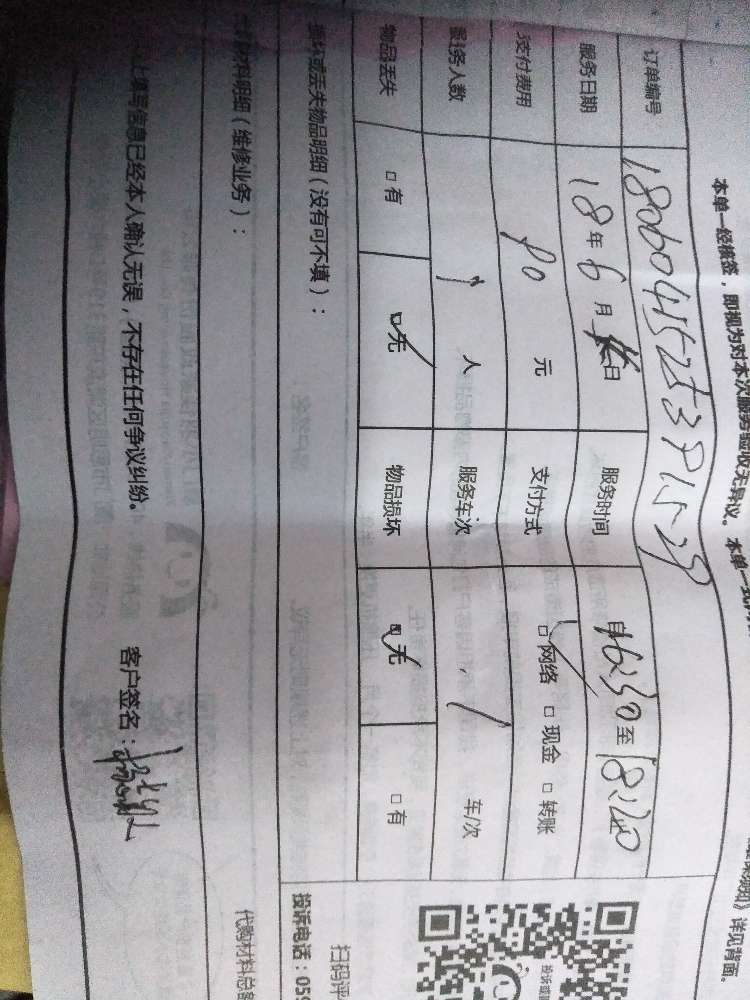 本单一经核签，即视为对本次服务验收无异议。本单一式
》详见背面。
订单编号 1806041525391529
服务日期 18年6月 日 服务时间 自16:30至18:20
支付费用 90元 支付方式 网络 现金 转账
服务人数 1人 服务车次 1 车/次
物品丢失 有 无 物品损坏 无 有
损坏或丢失物品明细（没有可不填）：
扫码评
投诉电话：059
材料明细（维修业务）：
代购材料总
上填写信息已经本人确认无误，不存在任何争议纠纷。 客户签名：